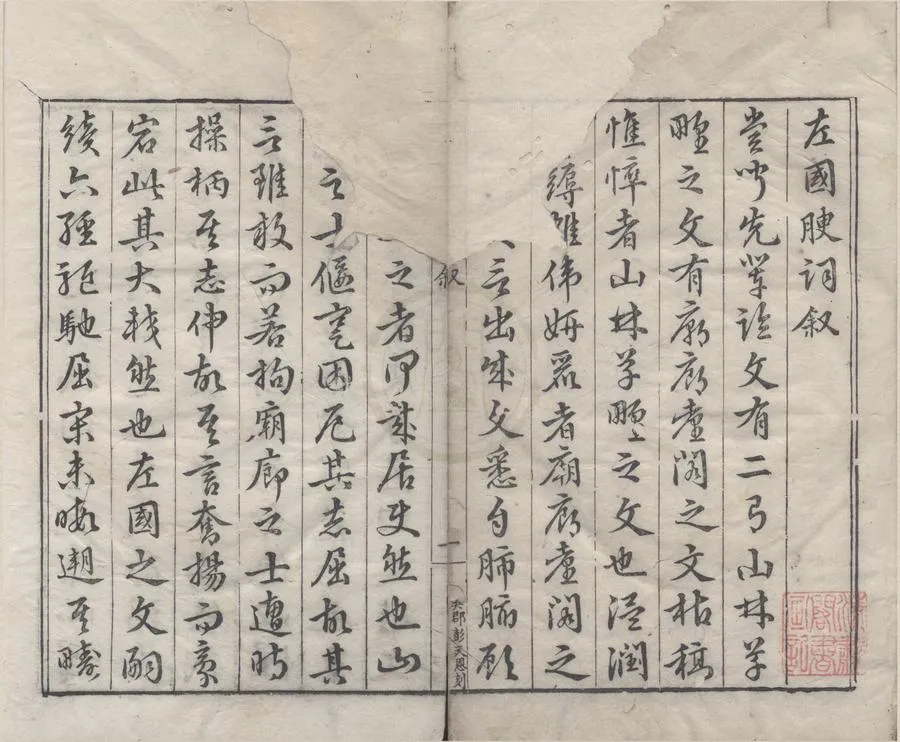 左國腴詞叙
嘗聞先輩論文有二山林草
野之文有廟廊臺閣之文枯槁
憔悴者山林草野之文也溫潤
縟雅偉妍麗者廟廊臺閣之
言出成文悉自肺腑顧
叙
一
吳郡彭天恩刻
之者何哉居使然也山
之士偃蹇困厄其志屈故其
言雖放而若拘廟廊之士遭時
操柄其志伸故其言奮揚而豪
宕此其大較然也左國之文嗣
續六經馳屈宋未暇遡其疇